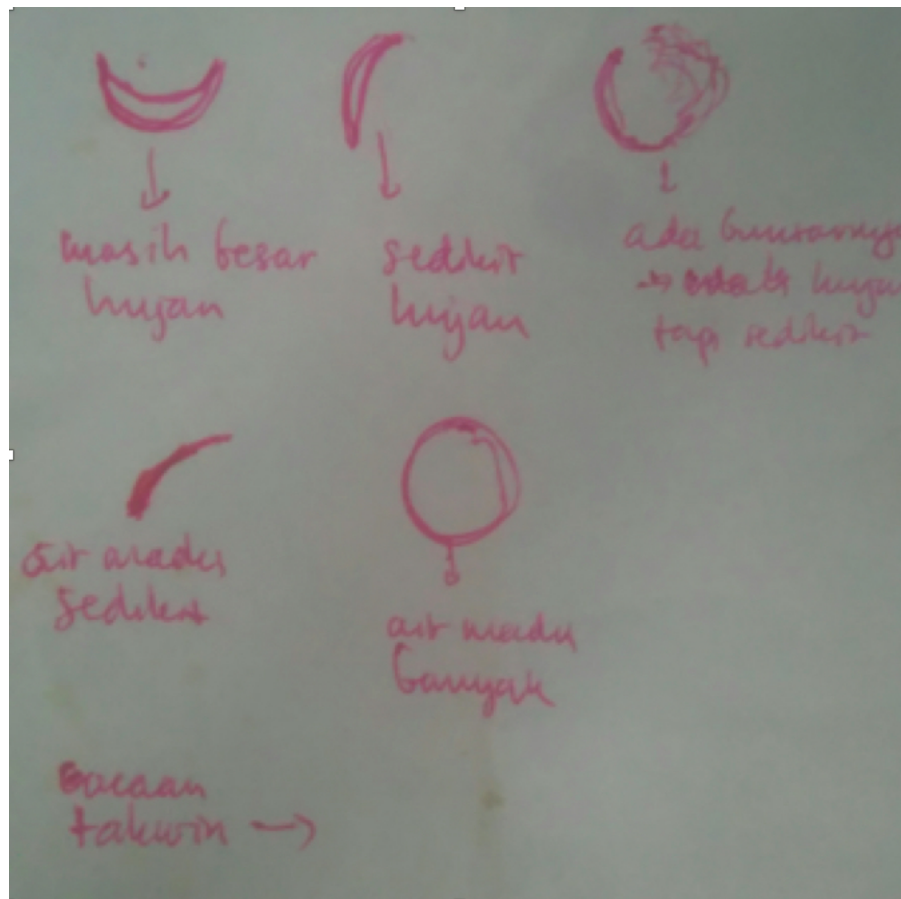 masih besar
hujan
sedikit
hujan
ada
hujan
tapi sedikit
air madu
sedikit
air madu
banyak
bacaan
takwin